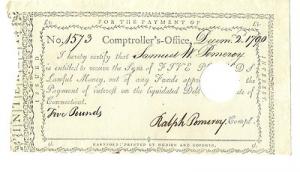 FOR THE PAYMENT OF
No. 1573 Comptroller's-Office, Decem. 2. 1790
I hereby certify that Samuel W. Pomeroy
is entitled to receive the Sum of FIVE P D S.
Lawful Money, out of any Funds appro the
Payment of interest on the liquidated Debt ate of
Connecticut.
Five Pounds
Ralph Pomeroy Compt.
HARTFORD: PRINTED BY HUDSON AND GOODWIN.